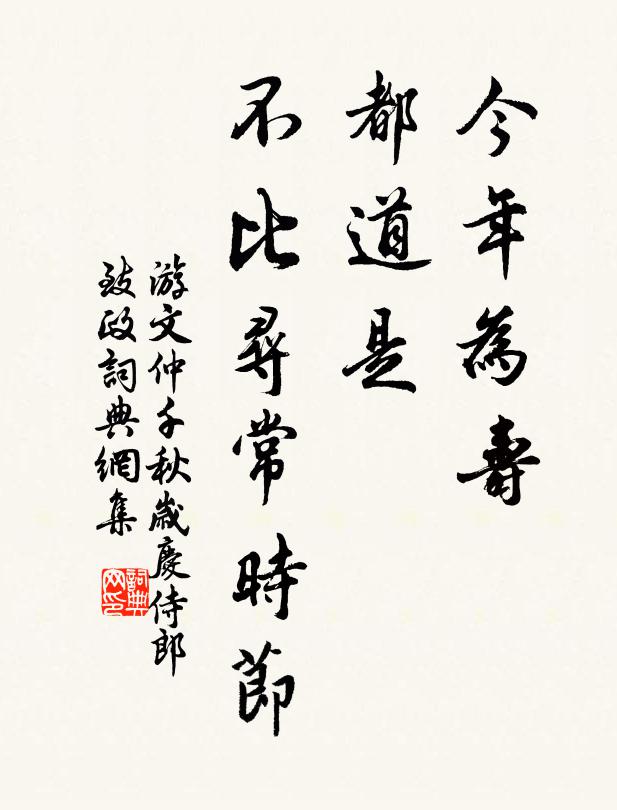 今年為壽
都道是
不比尋常時節
游文仲千秋歲慶侍郎
致政詞典網集
詞典
网印